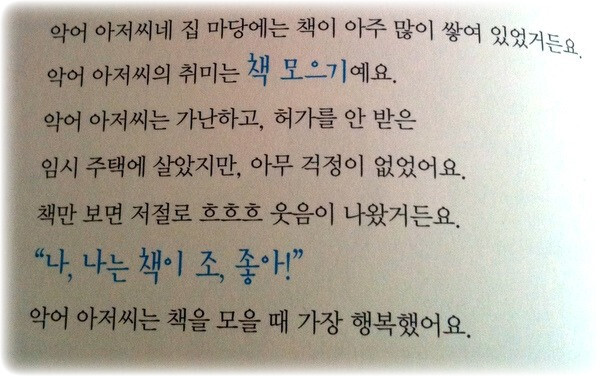 악어 아저씨네 집 마당에는 책이 아주 많이 쌓여 있었거든요.
악어 아저씨의 취미는 책 모으기예요.
악어 아저씨는 가난하고, 허가를 안 받은
임시 주택에 살았지만, 아무 걱정이 없었어요.
책만 보면 저절로 흐흐흐 웃음이 나왔거든요.
“나, 나는 책이 조, 좋아!”
악어 아저씨는 책을 모을 때 가장 행복했어요.